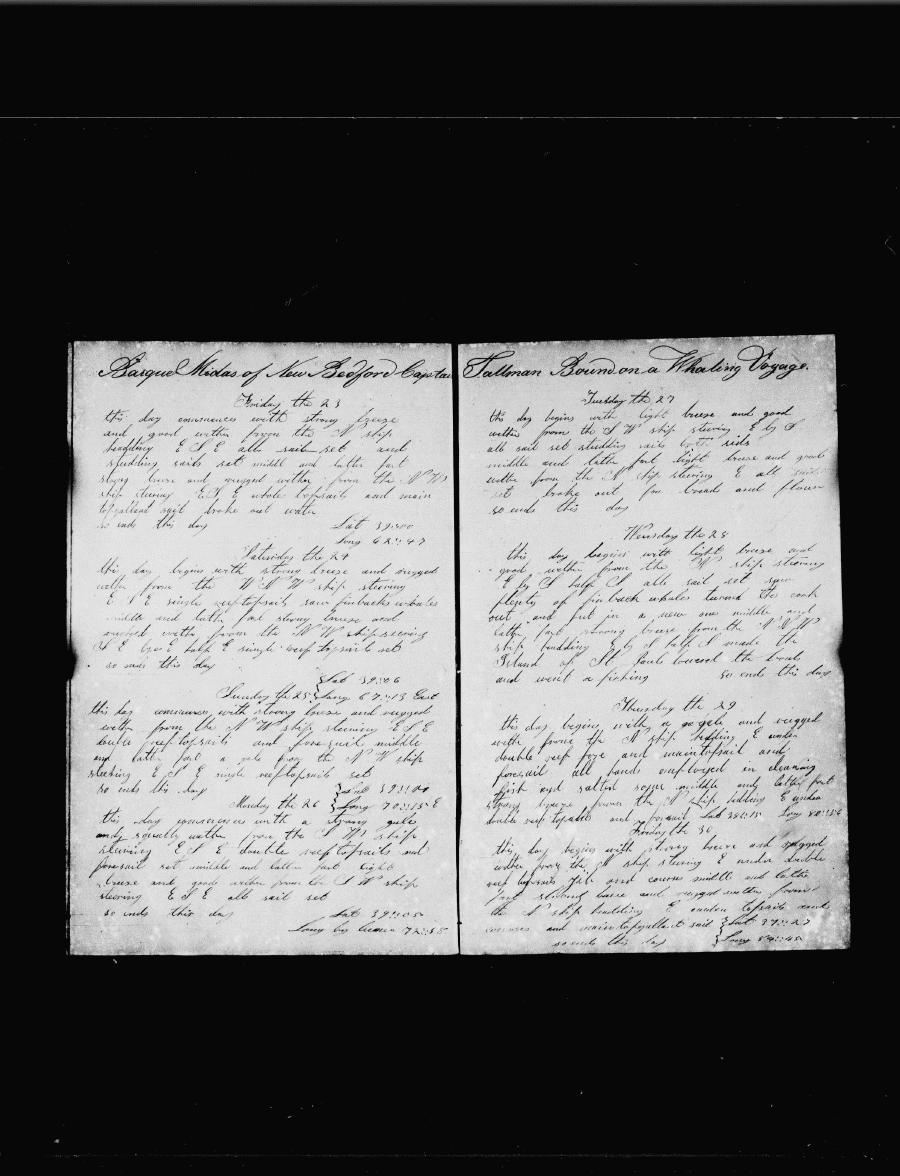 Barque Midas of New Bedford Captai
Friday the 23
this day comences with strong breeze
and good wether from the N ship
headding E S E alls sail set and
studding sails set middl and latter part
stong breeze and rugged wether from the N W
ship steering E S E whole topsails and main
topgallant sail broke out water
so ends this day Lat 39::00
Long 62::47
Saturday the 24
this day begins with strong breeze and rugged
wether from the W N W ship steering
E E single reef topsails saw finbacks whales
middle and latter part strong breeze and
rugged wether from the N W ship steering
S E by E half E single reef topsails set
so ends this day
Lat 39::06
Sunday the 25 Long 67::13 East
this day comences with strong breeze and rugged
wether from the N W ship steering E S E
double reef topsails and foresail middle
and latter part a gale from the N W ship
steering E S E single reef topsails set
so ends this day Lat 39::00
Monday the 26 Long 70::15 E
this day comences with a strong gale
and squally wether from the S W ship
steering E S E double reef topsails and
foresail set middle and latter part light
breeze and good wether from the S W ship
steering E S E all sail set
so ends this day Lat 39::05
Long by 72::55
Tallman Bound on a Whaling Voyage.
Tuesday the 27
this day begins with light breeze and good
wether from the S W ship steering E by S
all sail set studding sails both sids
middle and latter part light breeze and good
wether from the N ship steering E all sails
set broke out for bread and flour
so ends this day
Wensday the 28
this day begins with light breeze and
good wether from the W ship steering
E by S half S all sail set saw
plenty of finback whales
out and put in a new one middle and
latter part strong breeze from the N N W
ship headding E by S half S made the
Island of St Pauls lowerd the boats
and went a fishing so ends this day
Thursday the 29
this day begins with a gale and rugged
wether from the N ship hedding E under
double reef fore and maintopsail and
foresail all hands employed in cleaning
fish and salted some middle and latter part
strong breeze from the N ship hedding E under
double reef topsails and foresail Lat 38::15 Long
Friday the 30
this day begins with strong breeze and rugged
wether from the N ship steering E under double
reef topsails and courses middle and latter
part strong breeze and rugged wether from
the N ship headding E under topsails and
courses and maintopgallant sail Lat 37::27
so ends this day Long